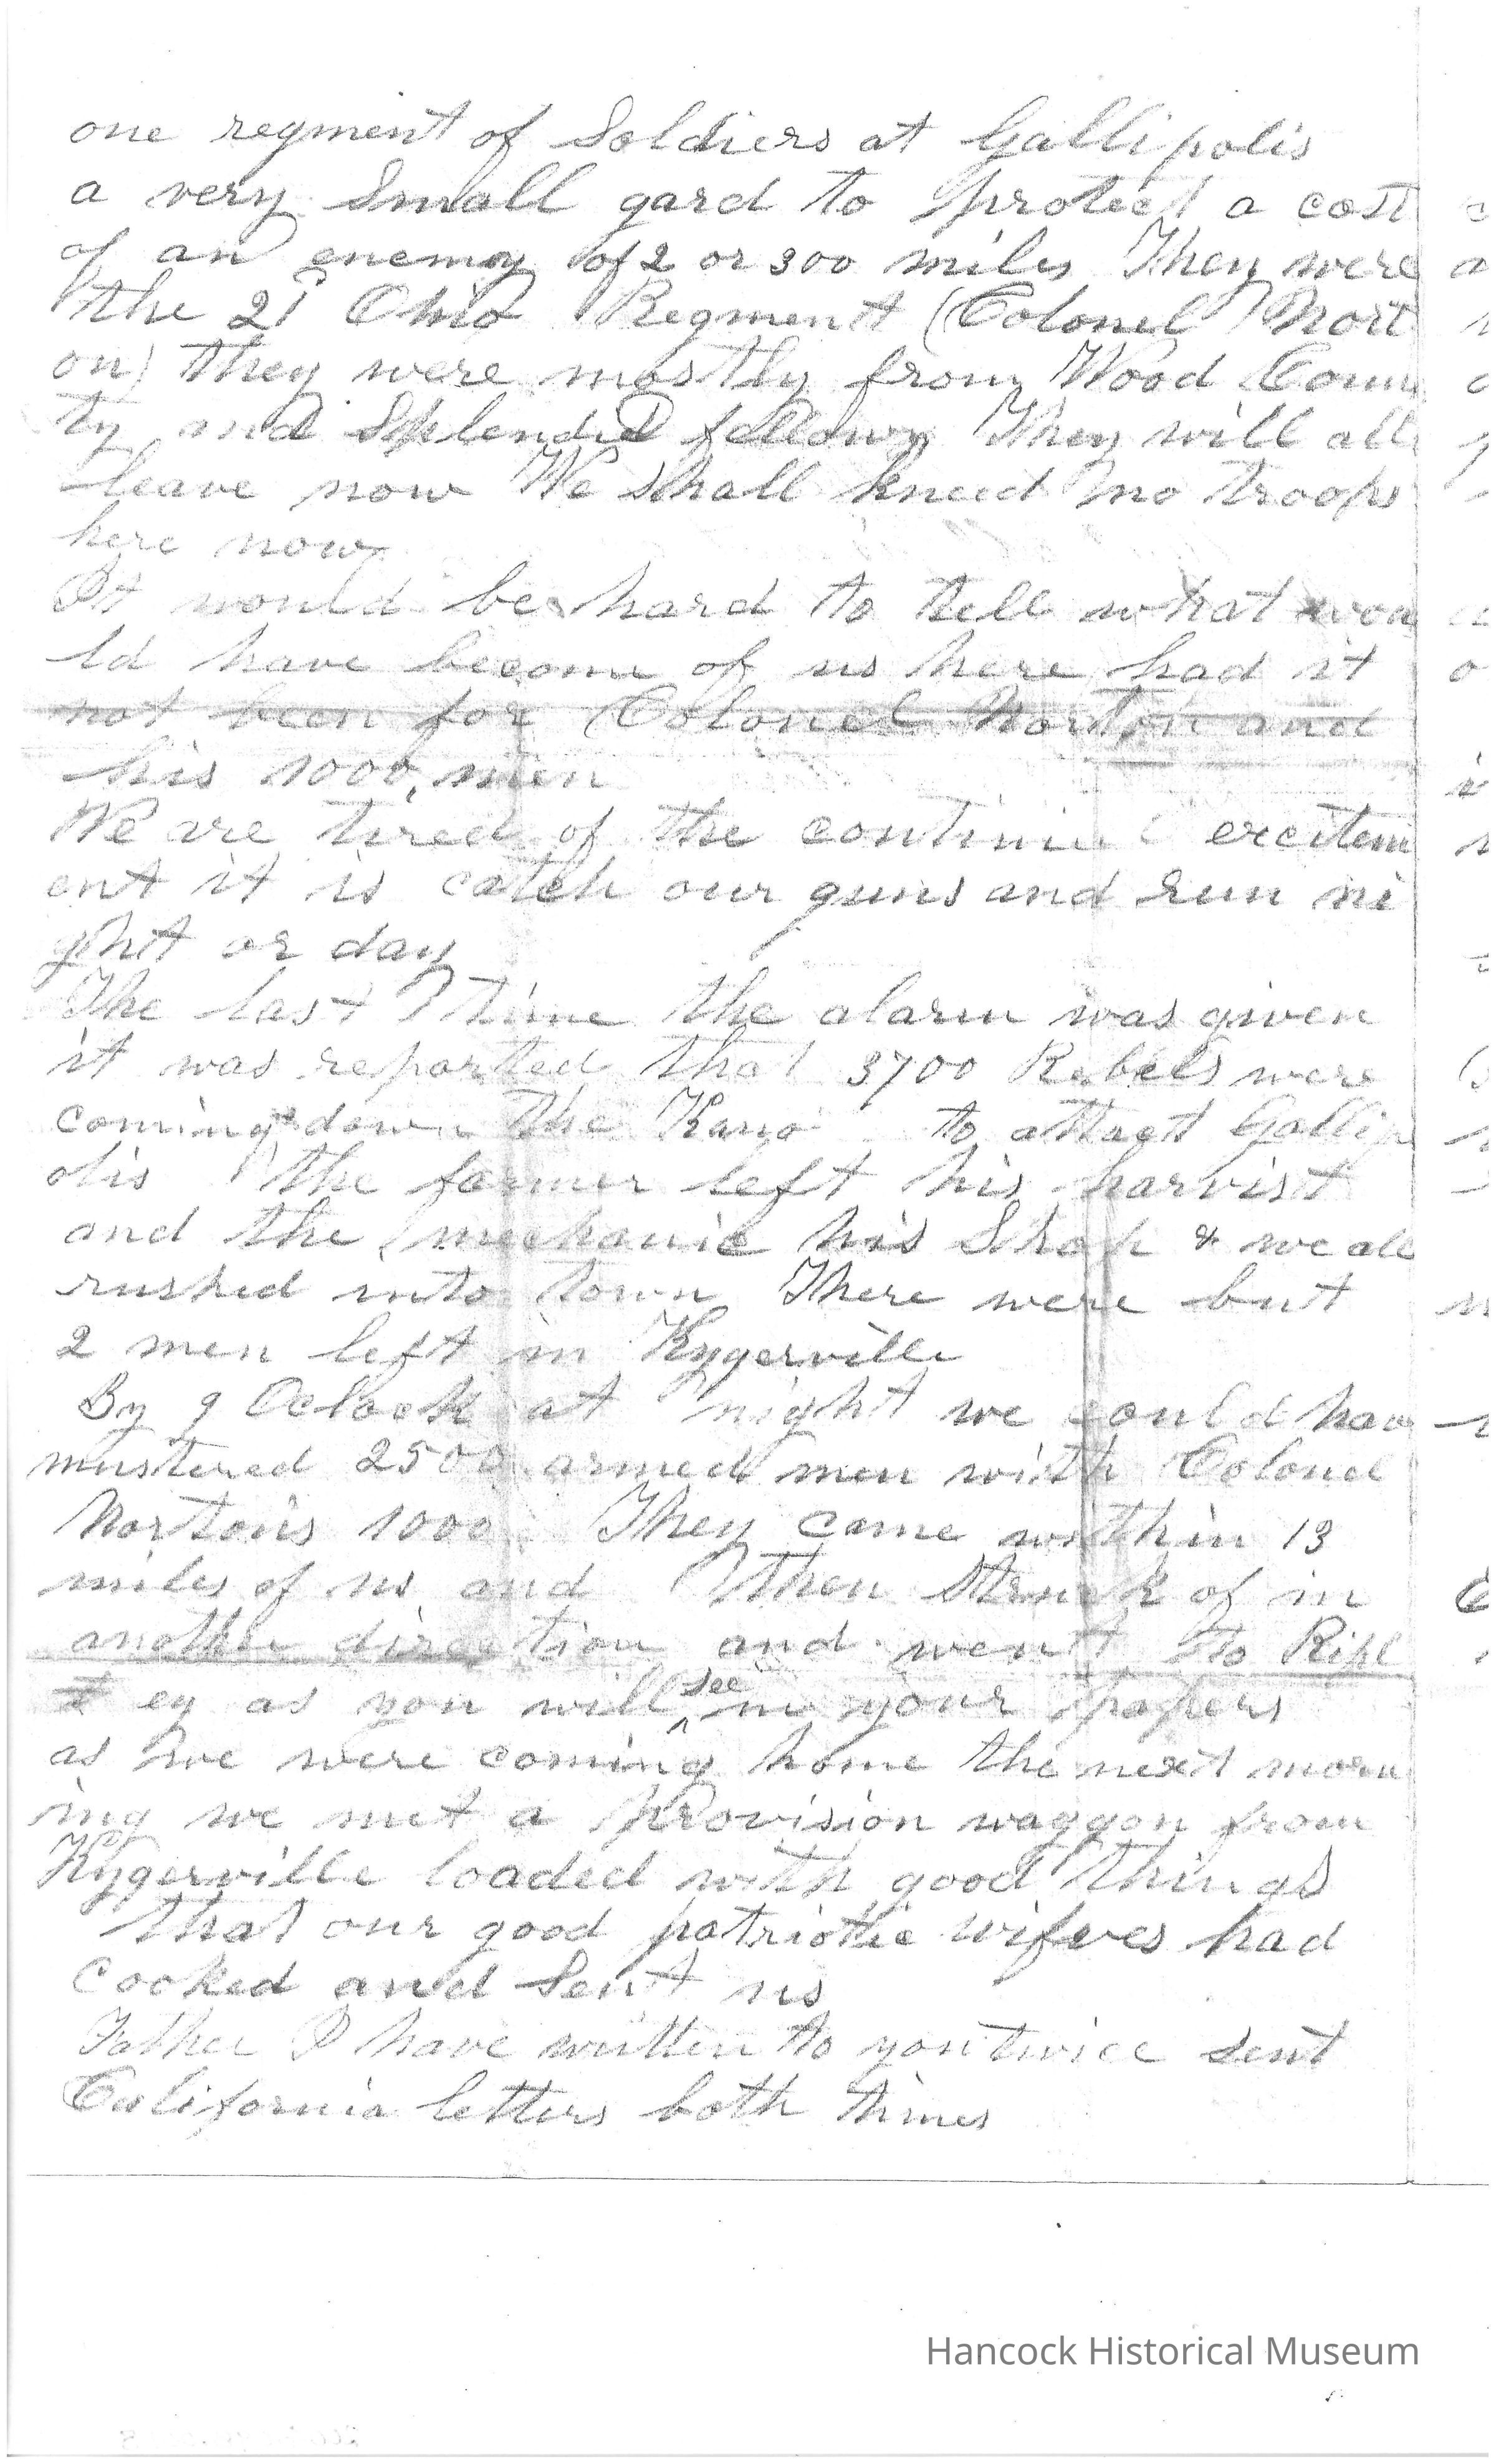 one regment of Soldiers at Gallipolis
a very Small gard to protect a cost
of an enemy of 2 or 300 miles They were
the 21 Ohio Regment (Colonel Nort
on) they were mostly from Wood Coun
ty and Splendid fellows They will all
leave now We shall kneed no troops
here now
It would be hard to tell what wou
ld have become of us here had it
not been for Colonel Norton and
his 1000 men
We are tired of the continu excitem
ent it is catch our guns and run ni
ght or day
The last time the alarm was given
it was reported that 3700 Rebels were
coming down the Kano to attact Gallip
olis the farmer left his harvist
and the mechanic his Shop & we all
rushed into town There were but
2 men left in Kygerville
By 9 Oclock at night we could hav
mustered 2500 armed men with Colonel
Norton's 1000 They came within 13
miles of us and then Struck of in
another direction and went to Ripl
ey as you will see in your papers
as we were coming home the next morn
ing we met a Provision waggon from
Kygerville loaded with good things
that our good patriotic wifves had
cooked and Sent us
Father I have written to you twice sent
California letters both times
Hancock Historical Museum